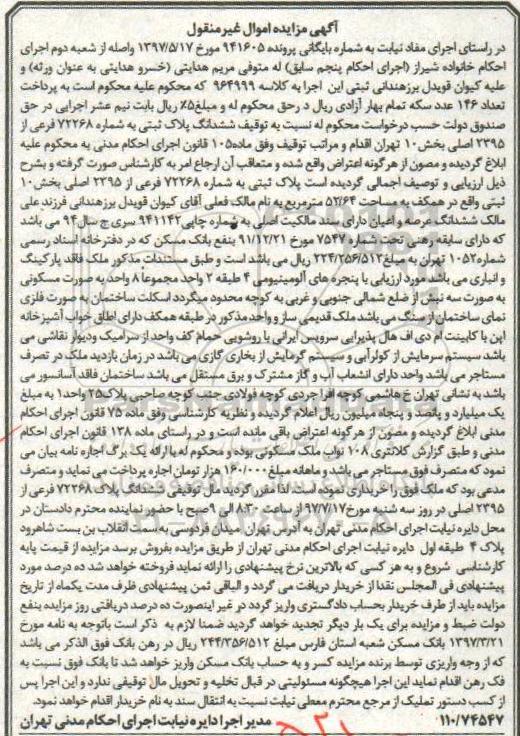 آگهی مزایده اموال غیر منقول
در راستای اجرای مفاد نیابت به شماره بایگانی پرونده ۹۴۱۶۰۵ مورخ ۱۳۹۷/۵/۱۷ واصله از شعبه دوم اجرای
احکام خانواده شیراز (اجرای احکام پنجم سابق) له متوفی مریم هدایتی (خسرو هدایتی به عنوان ورثه) و
علیه کیوان قویدل برزهندانی ثبتی این اجرا به کلاسه ۹۶۴۹۹۹ که محکوم علیه محکوم است به پرداخت
تعداد ۱۴۶ عدد سکه تمام بهار آزادی ریال در حق محکوم له و مبلغ ۵٪ ریال بابت نیم عشر اجرایی در حق
صندوق دولت حسب درخواست محکوم له نسبت به توقیف ششدانگ پلاک ثبتی به شماره ۷۲۲۶۸ فرعی از
۲۳۹۵ اصلی بخش ۱۰ تهران اقدام و مراتب توقیف وفق ماده ۱۰۵ قانون اجرای احکام مدنی به محکوم علیه
ابلاغ گردیده و مصون از هرگونه اعتراض واقع شده و متعاقب آن ارجاع امر به کارشناس صورت گرفته و بشرح
ذیل ارزیابی و توصیف اجمالی گردیده است پلاک ثبتی به شماره ۷۲۲۶۸ فرعی از ۲۳۹۵ اصلی بخش ۱۰
ثبتی واقع در همکف به مساحت ۵۲/۶۴ مترمربع به نام مالک فعلی آقای کیوان قویدل برزهندانی فرزند علی
مالک ششدانگ عرصه و اعیان دارای سند مالکیت اصلی به شماره چاپی ۹۴۱۱۴۲ سری ج سال ۹۴ می باشد
که دارای سابقه رهنی تحت شماره ۷۵۴۷ مورخ ۹۱/۱۲/۲۱ بنفع بانک مسکن که در دفترخانه اسناد رسمی
شماره ۱۰۵۲ تهران به مبلغ ۲۲۴/۲۵۶/۵۱۲ ریال می باشد است و طبق مستندات مذکور ملک فاقد پارکینگ
و انباری می باشد مورد ارزیابی با پنجره های آلومینیومی ۴ طبقه ۲ واحد مجموعا ۸ واحد به صورت مسکونی
به صورت سه نبش از ضلع شمالی جنوبی و غربی به کوچه محدود میگردد اسکلت ساختمان به صورت فلزی
نمای ساختمان از سنگ می باشد ملک قدیمی ساز و واحد مذکور در طبقه همکف دارای اطاق خواب آشپزخانه
اپن با کابینت ام دی اف هال پذیرایی سرویس ایرانی با روشویی حمام کف واحد از سرامیک و دیوار نقاشی می
باشد سیستم سرمایش از کولر آبی و سیستم گرمایش از بخاری گازی می باشد در زمان بازدید ملک در تصرف
مستاجر می باشد واحد دارای انشعاب آب و گاز مشترک و برق مستقل می باشد ساختمان فاقد آسانسور می
باشد به نشانی تهران خ هاشمی کوچه افراجردی کوچه فولادی جنب کوچه صاحبی پلاک ۲۵ واحد ۱ به مبلغ
یک میلیارد و پانصد و پنجاه میلیون ریال اعلام گردیده و نظریه کارشناسی وفق ماده ۷۵ قانون اجرای احکام
مدنی ابلاغ گردیده و مصون از هرگونه اعتراض باقی مانده است و در راستای ماده ۱۳۸ قانون اجرای احکام
مدنی و طبق گزارش کلانتری ۱۰۸ نواب ملک مسکونی بوده و محکوم له با ارائه یک برگ اجاره نامه بیان می
نمود که متصرف فوق مستاجر می باشد و ماهانه مبلغ ۱۶۰/۰۰۰ هزار تومان اجاره پرداخت می نماید و متصرف
مدعی بود که ملک فوق را خریداری نموده است لذا مقرر گردید مال توقیفی ششدانگ پلاک ۷۲۲۶۸ فرعی از
۲۳۹۵ اصلی در روز سه شنبه مورخ ۹۷/۷/۱۷ از ساعت ۸:۳۰ الی ۹ صبح با حضور نماینده محترم دادستان در
محل دایره نیابت اجرای احکام مدنی تهران به آدرس تهران میدان فردوسی به سمت انقلاب بن بست شاهرود
پلاک ۴ طبقه اول دایره نیابت اجرای احکام مدنی تهران از طریق مزایده بفروش برسد مزایده از قیمت پایه
کارشناسی شروع و به هر کسی که بالاترین نرخ پیشنهادی را ارائه نماید فروخته خواهد شد ده درصد مورد
پیشنهادی فی المجلس نقدا از خریدار دریافت می گردد و الباقی ثمن پیشنهادی ظرف مدت یکماه از تاریخ
مزایده باید از طرف خریدار بحساب دادگستری واریز گردد در غیر اینصورت ده درصد دریافتی روز مزایده بنفع
دولت ضبط و مزایده برای یک بار دیگر تجدید خواهد گردید ضمنا لازم به ذکر است باتوجه به نامه مورخ
۱۳۹۷/۳/۲۱ بانک مسکن شعبه استان فارس مبلغ ۲۴۴/۳۵۶/۵۱۲ ریال در رهن بانک فوق الذکر می باشد
که از وجه واریزی توسط برنده مزایده کسر و به حساب بانک مسکن واریز خواهد شد تا بانک فوق نسبت به
فک رهن اقدام نماید این اجرا هیچگونه مسئولیتی در قبال تخلیه و تحویل مال توقیفی ندارد و این اجرا پس
از کسب دستور تملیک از مرجع محترم معطی نیابت نسبت به انتقال سند به نام خریدار اقدام خواهد نمود.
۱۱۰/۷۴۵۴۷ مدیر اجرا دایره نیابت اجرای احکام مدنی تهران